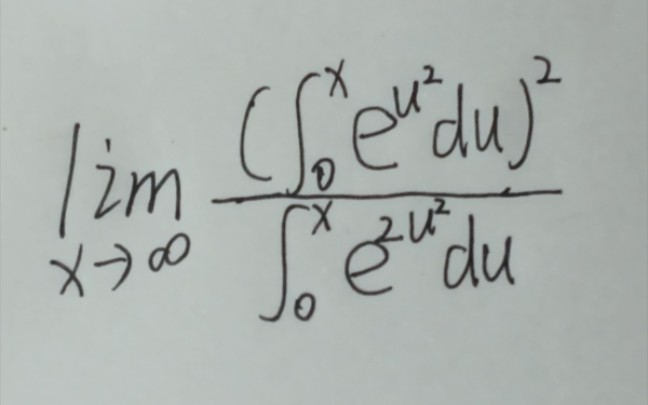 lim x→∞ (∫₀ˣ e^{u²} du)² / ∫₀ˣ e^{2u²} du